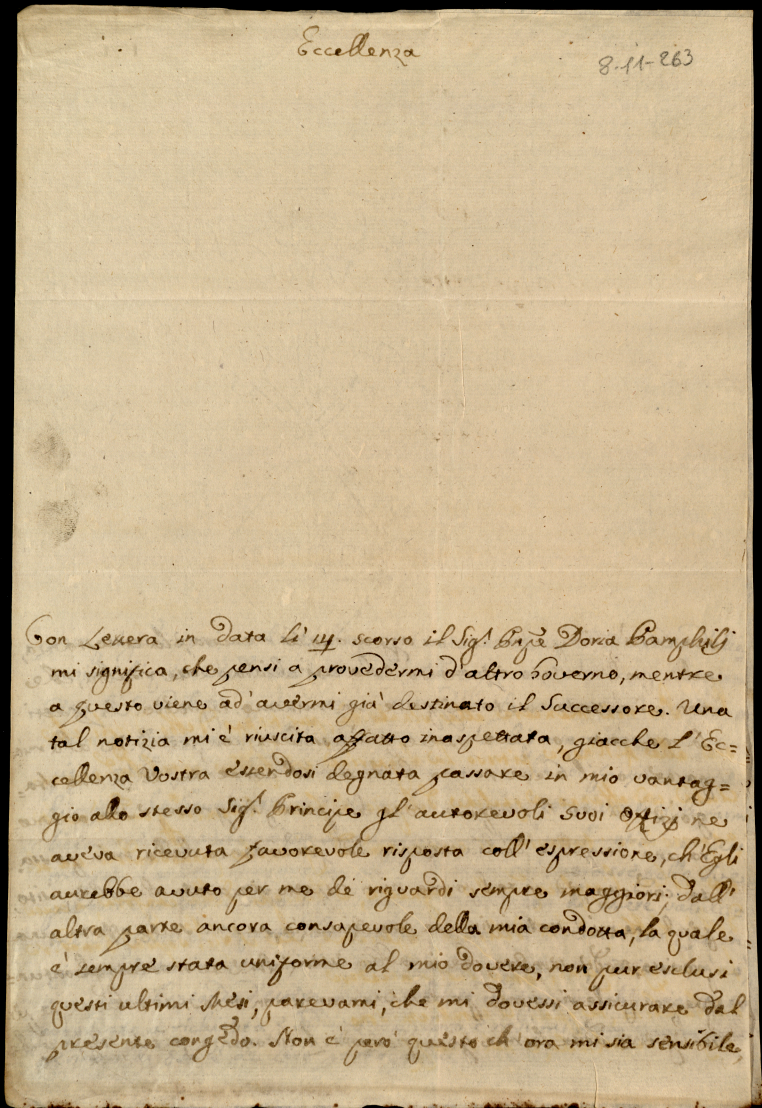 Eccellenza
8-11-263
Con Lettera in data li 14. scorso il Sig.r Pnpe Doria Pamphilj
mi significa, che pensi a provedermi d'altro Governo, mentre
a questo viene ad'avermi già destinato il Successore. Una
tal notizia mi è riuscita affatto inaspettata, giacche l'Ec=
cellenza Vostra essendosi degnata passare in mio vantag=
gio allo stesso Sig.r Principe gl'autorevoli Suoi Offizj ne
aveva ricevuta favorevole risposta coll'espressione, ch'Egli
aurebbe avuto per me de riguardi sempre maggiori; dall'
altra parte ancora consapevole della mia condotta, la quale
è sempre stata uniforme al mio dovere, non pur esclusi
questi ultimi Mesi, parevami, che mi dovessi assicurare dal
presente congedo. Non è però questo ch'ora mi sia sensibile,